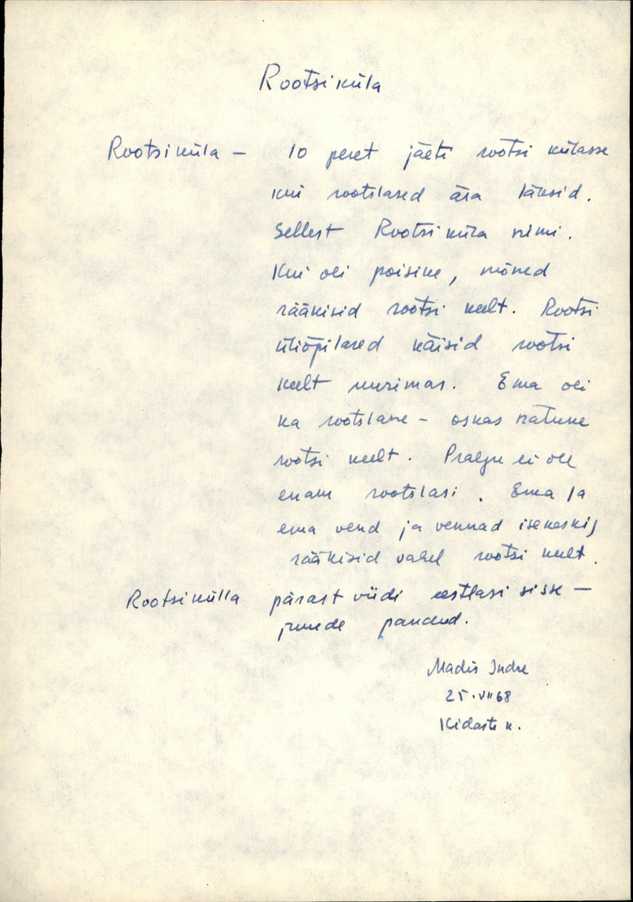 Rootsiküla
Rootsiküla – 10 peret jäeti rootsi külasse
kui rootslased ära läksid.
Sellest Rootsiküla nimi.
Kui oli poisike, mõned
rääkisid rootsi keelt. Rootsi
üliõpilased käisid rootsi
keelt uurimas. Ema oli
ka rootslane – oskas natuke
rootsi keelt. Praegu ei ole
enam rootslasi. Ema ja
ema vend ja vennad isekeskis
rääkisid vahel rootsi keelt.
Rootsikülla pärast viidi eestlasi sisse –
juurde pandud.
Madis
25.VII 68
Kidaste k.